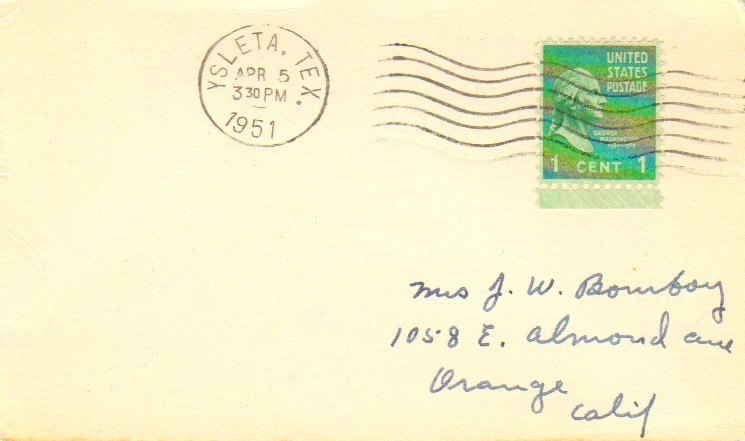 YSLETA, TEX.
APR 5
3 30 PM
1951
UNITED
STATES
POSTAGE
GEORGE
WASHINGTON
1 CENT 1
Mrs J. W. Bomboy
1058 E. Almond ave
Orange
Calif